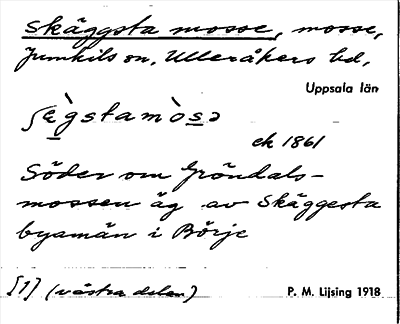 Skäggsta mosse, mosse,
Jumkils sn, Ulleråkers hd,
Uppsala län
ʃɛ̀gstamòsə
ek 1861
Söder om Gröndals-
mossen äg av Skäggesta
byamän i Börje
[1] (västra delen)
P. M. Lijsing 1918